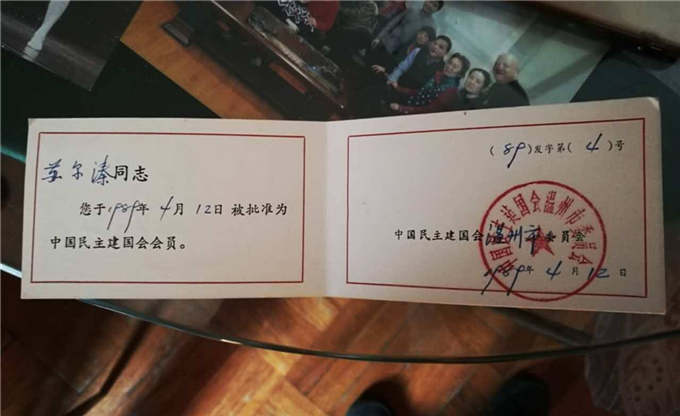 苏尔溱同志
您于1989年4月12日被批准为
中国民主建国会会员。
(89)发字第(4)号
中国民主建国会温州市委员会
1989年4月12日
中国民主建国会温州市委员会